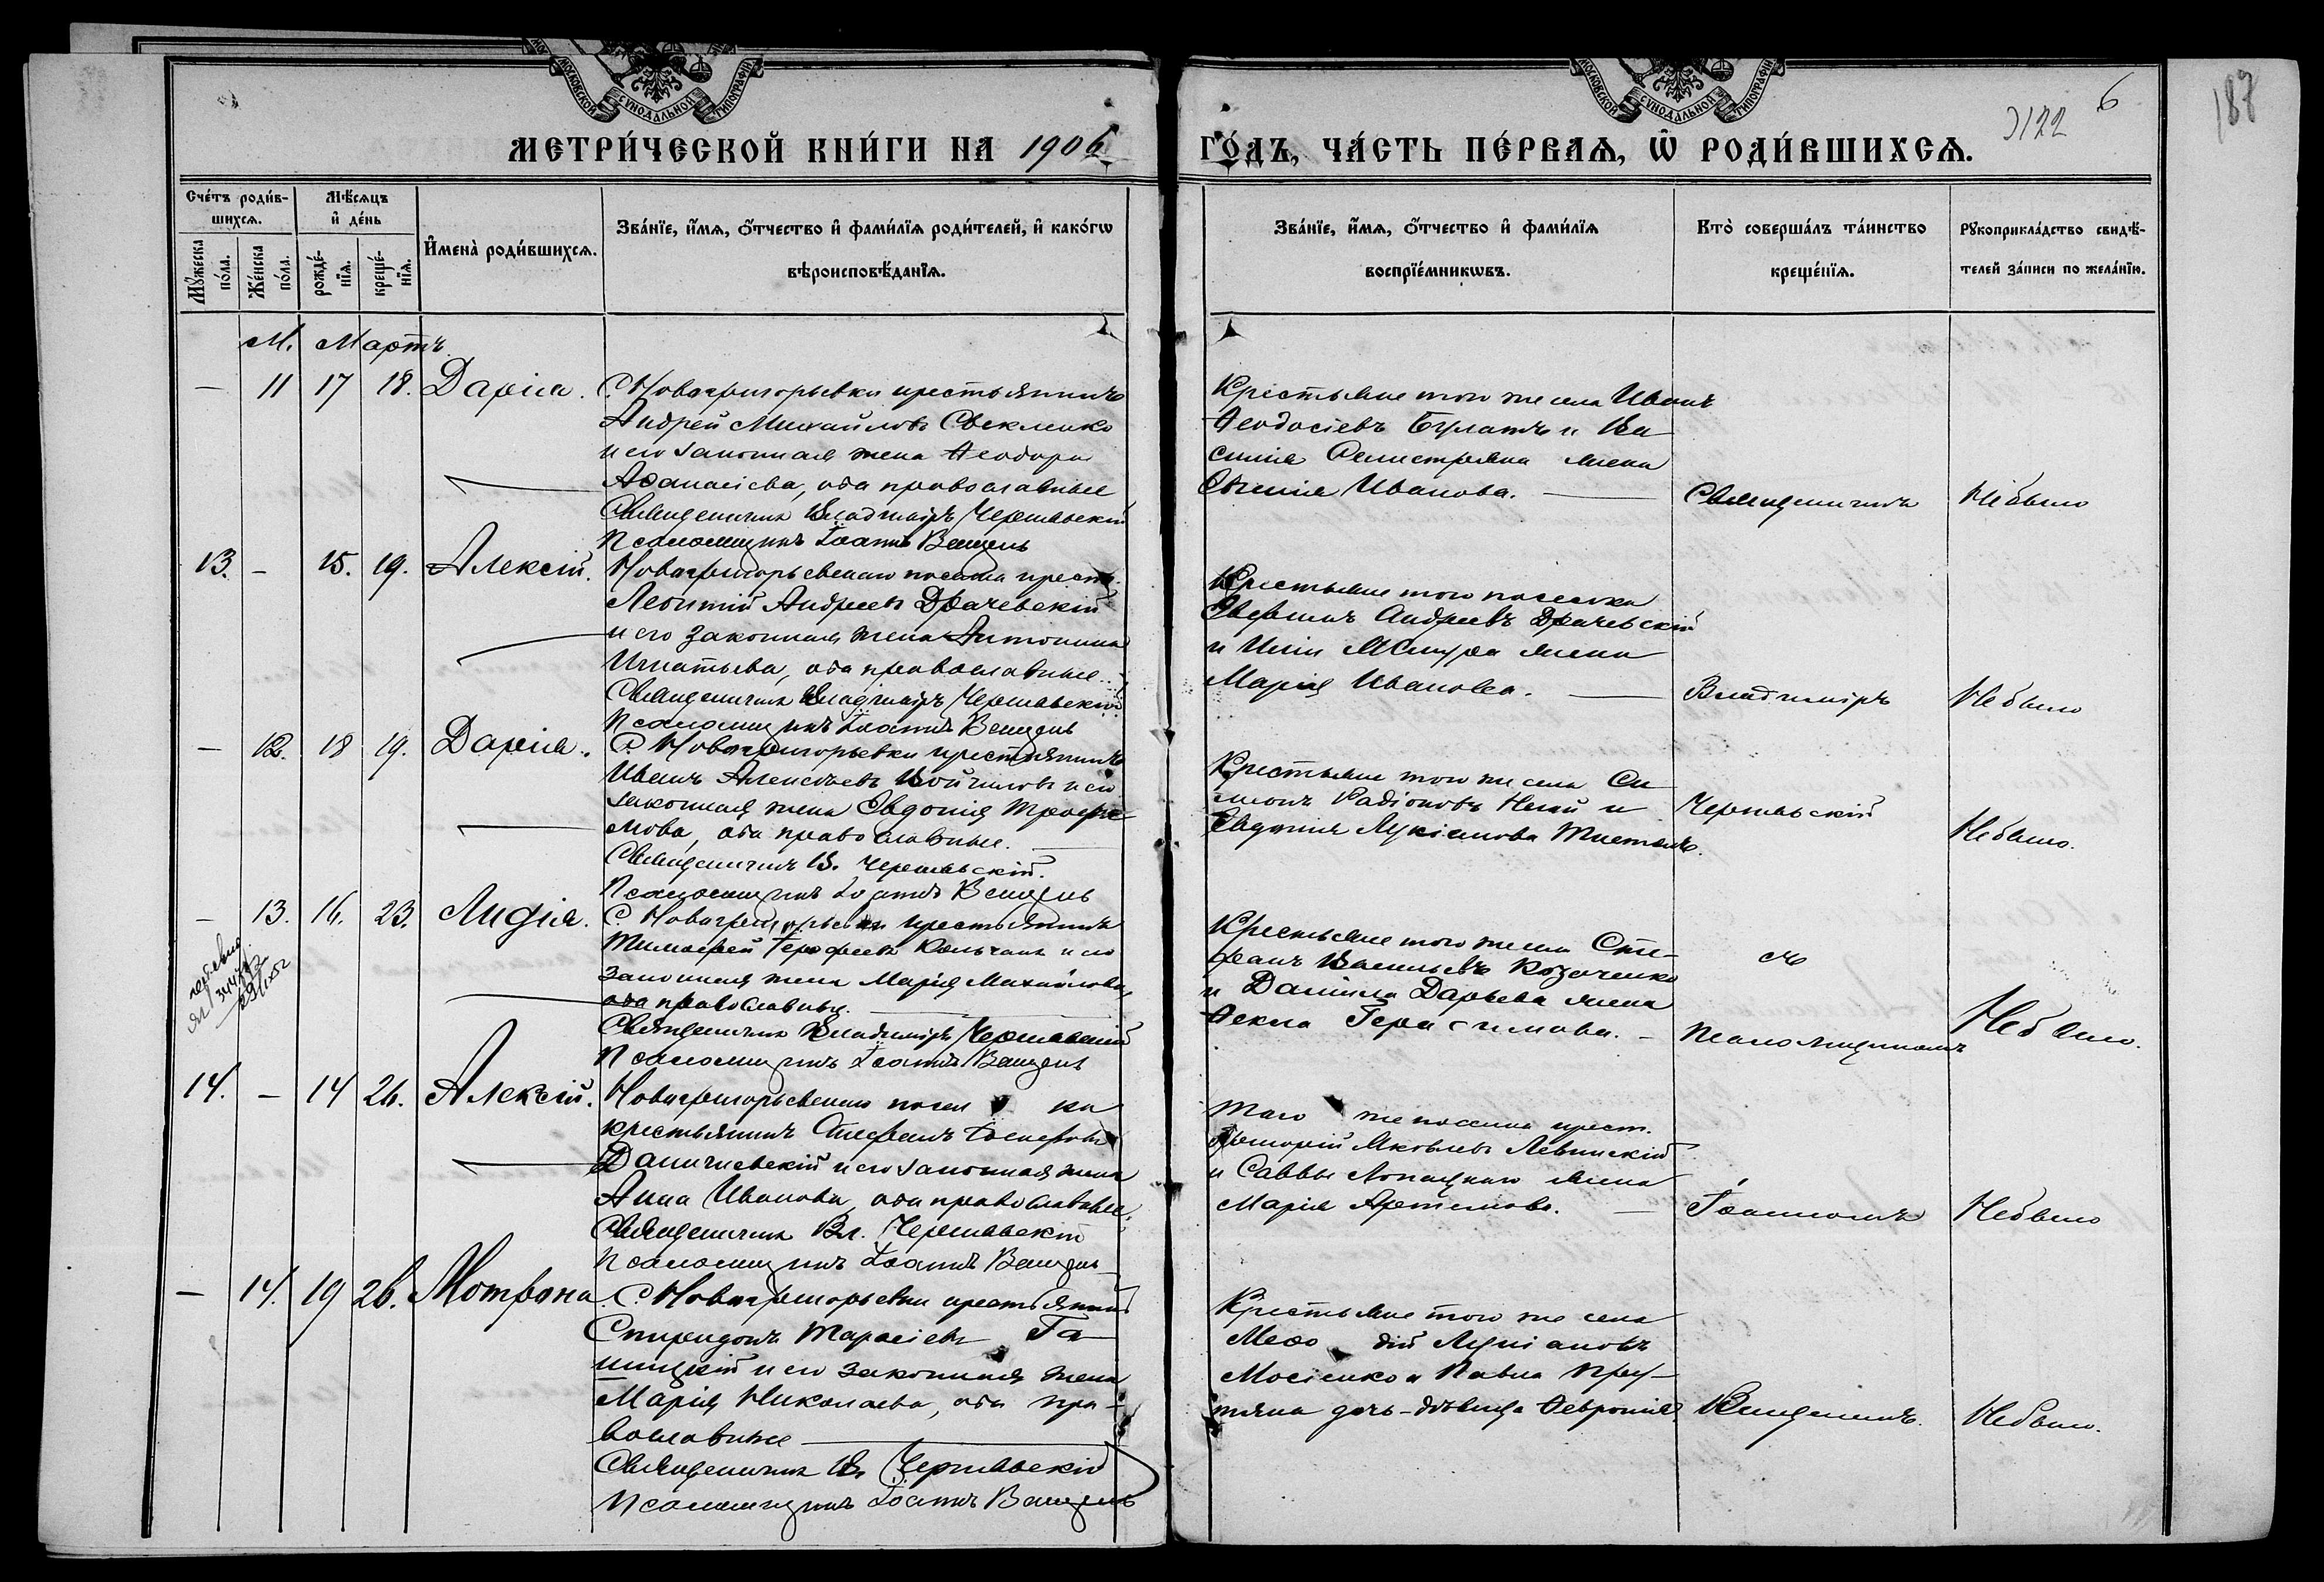 МОСКОВСКОЙ СѴНОДАЛЬНОЙ ТИПОГРАФІИ
МОСКОВСКОЙ СѴНОДАЛЬНОЙ ТИПОГРАФІИ
МЕТРИ́ЧЕСКОЙ КНИ́ГИ НА 1906
ГО́ДЪ, ЧА́СТЬ ПЕ́РВАѦ, Ѡ҆ РОДИ́ВШИХСѦ.
6
187
Сче́тъ роди́в-
шихсѧ.
Мѣ́сѧцъ
и҆ де́нь
Мꙋ́жеска
по́ла.
Же́нска
по́ла.
рожде́-
нїѧ.
креще́-
нїѧ.
И҆мена̀ роди́вшихсѧ.
Зва́нїе, и҆́мѧ, ѻ҆́тчество и҆ фами́лїѧ роди́телей, и҆ како́гѡ
вѣроисповѣ́данїѧ.
Зва́нїе, и҆́мѧ, ѻ҆́тчество и҆ фами́лїѧ
воспрїе́мникѡвъ.
Кто̀ соверша́лъ та́инство
креще́нїѧ.
Рꙋкоприкла́дство свидѣ́-
телей за́писи по жела́нїю.
М. Мартъ
— 11 17 18. Дарія.
С. Новогригорьевки крестьянинъ
Андрей Михайловъ Свекленко
и его законная жена Ѳеодора
Аѳанасіева, оба православные
Священникъ Владиміръ Чернявскій
Псаломщикъ Іоаннъ Венцель
Крестьяне того же села Иванъ
Ѳеодосіевъ Булатъ и Ва
силія Селистряна жена
Евгенія Иванова.
Священникъ
Не было
13. — 15. 19. Алексій.
Новогригорьевскаго поселка крест.
Леонтій Андреевъ Драчевскій
и его законная жена Антонина
Игнатьева, оба православные.
Священникъ Владиміръ Чернявскій
Псаломщикъ Іоаннъ Венцель
Крестьяне того поселка
Андреевъ Драчевскій
и жена
Марія Иванова.
Владиміръ
Не было
— 12. 18 19. Дарія.
С. Новогригорьевки крестьянинъ
Иванъ Алексѣевъ Войчиловъ и его
законная жена Евдокія Трофи
мова, оба православные.
Священникъ В. Чернявскій.
Псаломщикъ Іоаннъ Венцель
Крестьяне того же села Си
меонъ Радіоновъ и
Евдокія Лукіанова
Чернявскій
Не было.
— 13. 16. 23. Лидія.
С. Новогригорьевки крестьянинъ
Тимоѳей Ерофеевъ и его
законная жена Марія Михайлова,
оба православные.
Священникъ Владиміръ Чернявскій
Псаломщикъ Іоаннъ Венцель
Крестьяне того же села Сте-
фанъ Васильевъ Козаченко
и Даніила Дарьева жена
Ѳекла Герасимова.
съ
псаломщикомъ
Не было.
14. — 14 26. Алексій.
Новогригорьевскаго посел ка
крестьянинъ Стефанъ Іосифовъ
Даничевскій и его законная жена
Анна Иванова, оба православные.
Священникъ Вл. Чернявскій
Псаломщикъ Іоаннъ Венцель
Того же поселка крест.
Григорій Яковлевъ Левинскій
и Саввы Лопацкаго жена
Марія Артемова.
Іоанномъ
Не было
— 14. 19 26. Мотрона.
С. Новогригорьевки крестьянинъ
Спиридонъ Тарасіевъ Га
ницкій и его законная жена
Марія Николаева, оба пра-
вославные
Священникъ Вл Чернявскій
Псаломщикъ Іоаннъ Венцель
Крестьяне того же села
Меѳо дій Лукіановъ
Мосіенко и Павла Пру-
тяна дочь-дѣвица Ѳевронія
Венцелемъ.
Не было.